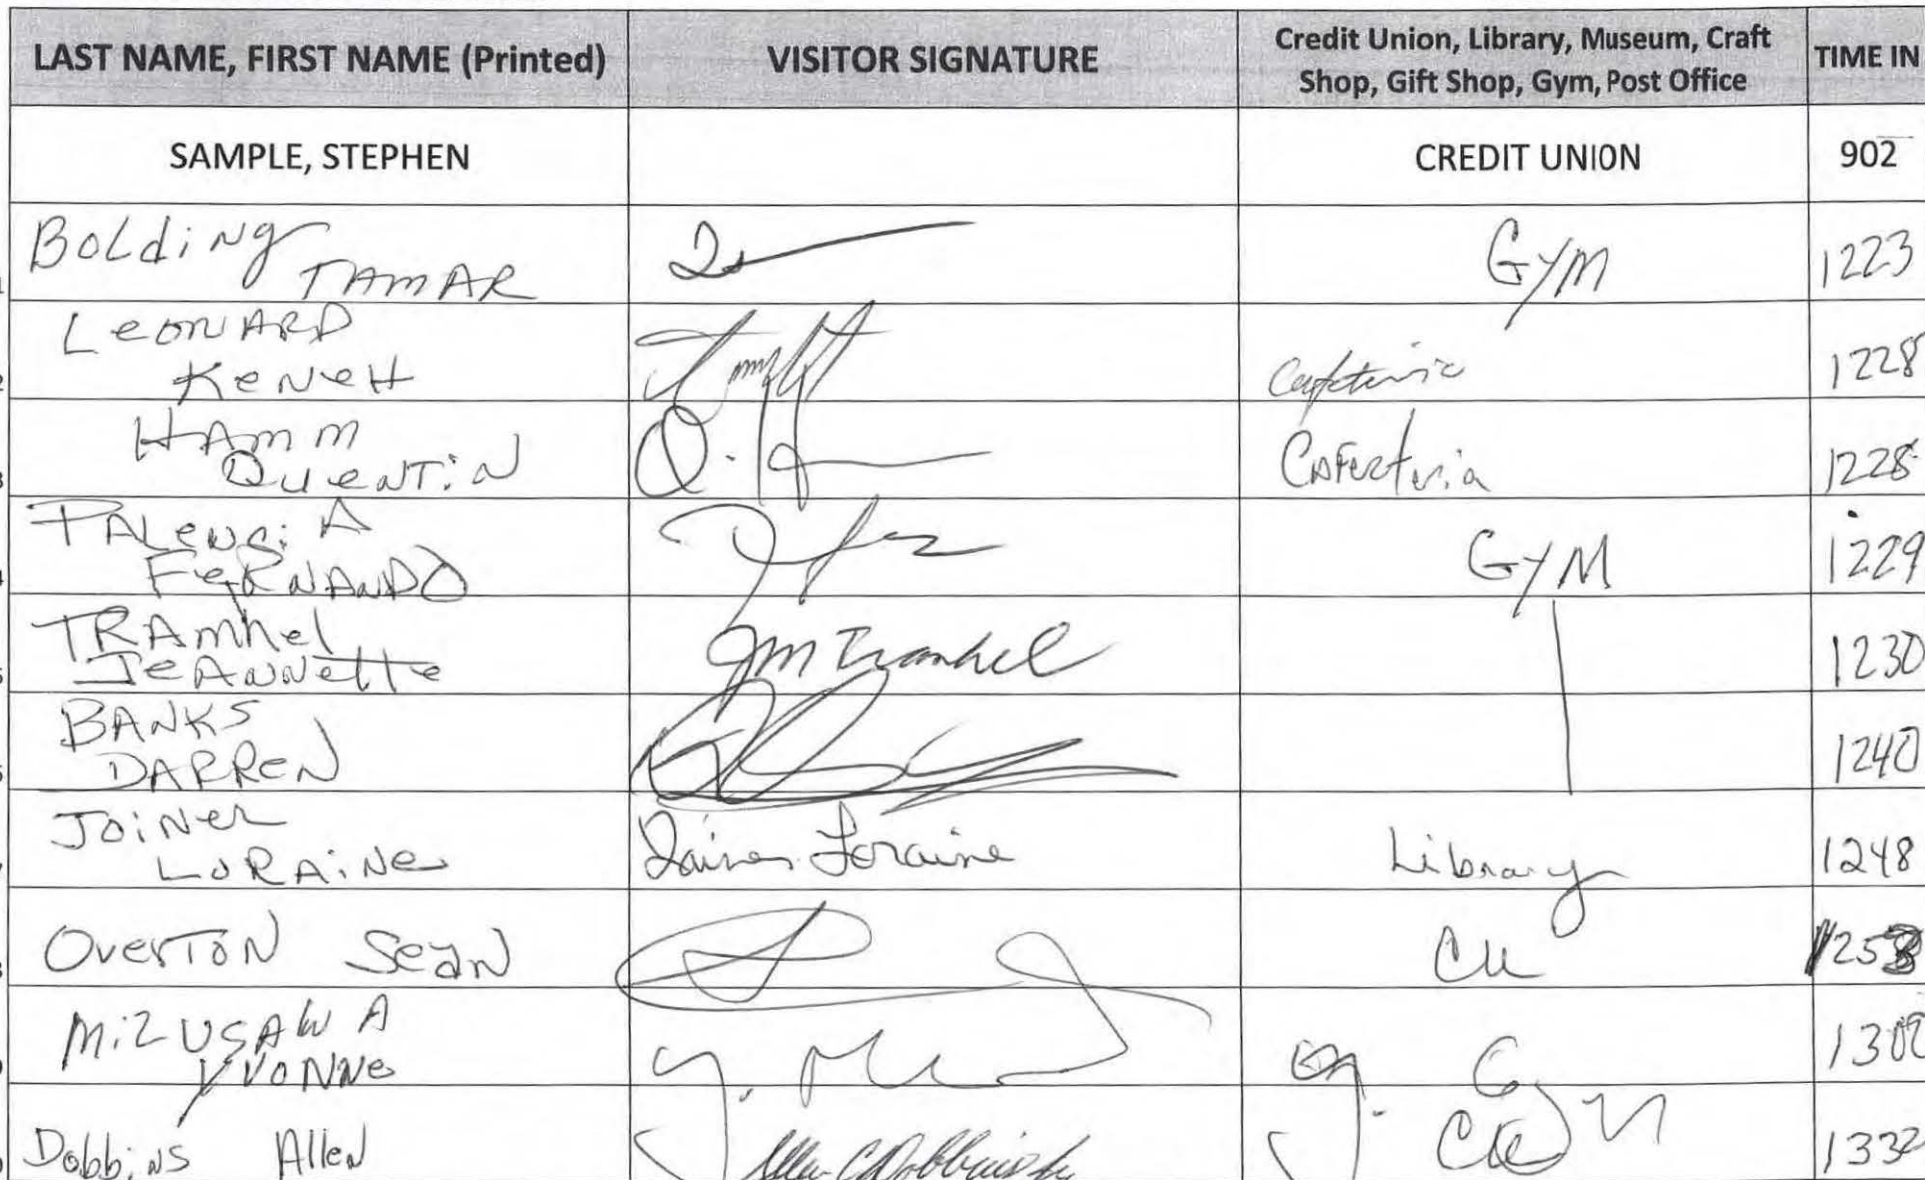 LAST NAME, FIRST NAME (Printed) VISITOR SIGNATURE Credit Union, Library, Museum, Craft Shop, Gift Shop, Gym, Post Office TIME IN
SAMPLE, STEPHEN CREDIT UNION 902
Bolding Gym 1223
TAMAR
LeonARD
KeNeH Cafeteria 1228
HAmm
QuenTiN Cafecteria 1228
PALeNSiA
FeRNANDO GYM 1229
TRAmhel
JeANNette JM Tramhel 1230
BANKS
DARREN 1240
JoiNer
LORAiNe Loraine Library 1248
OverToN SeaN CU
MiZUSAWA
YVONNe
Dobbins AlleN Allen C Dobbins CU 1332